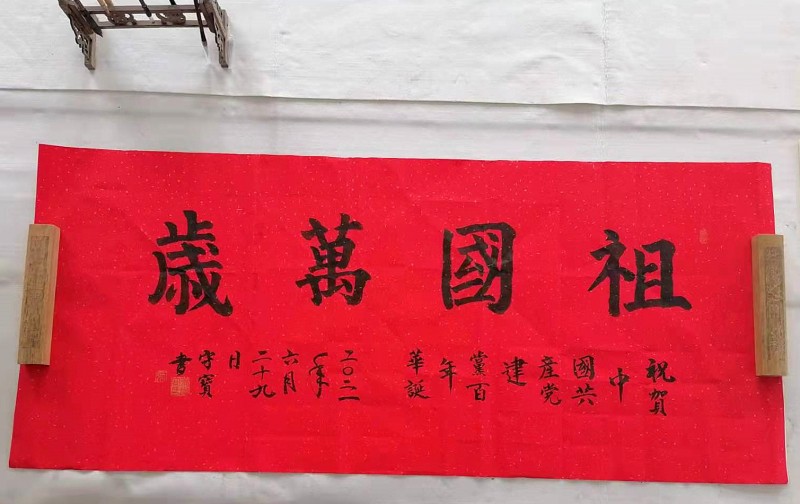 祖國萬歲
祝賀
中
國共
産党
建
黨百
年
華誕
二〇二一
年
六月
二十九
日
守寶
書